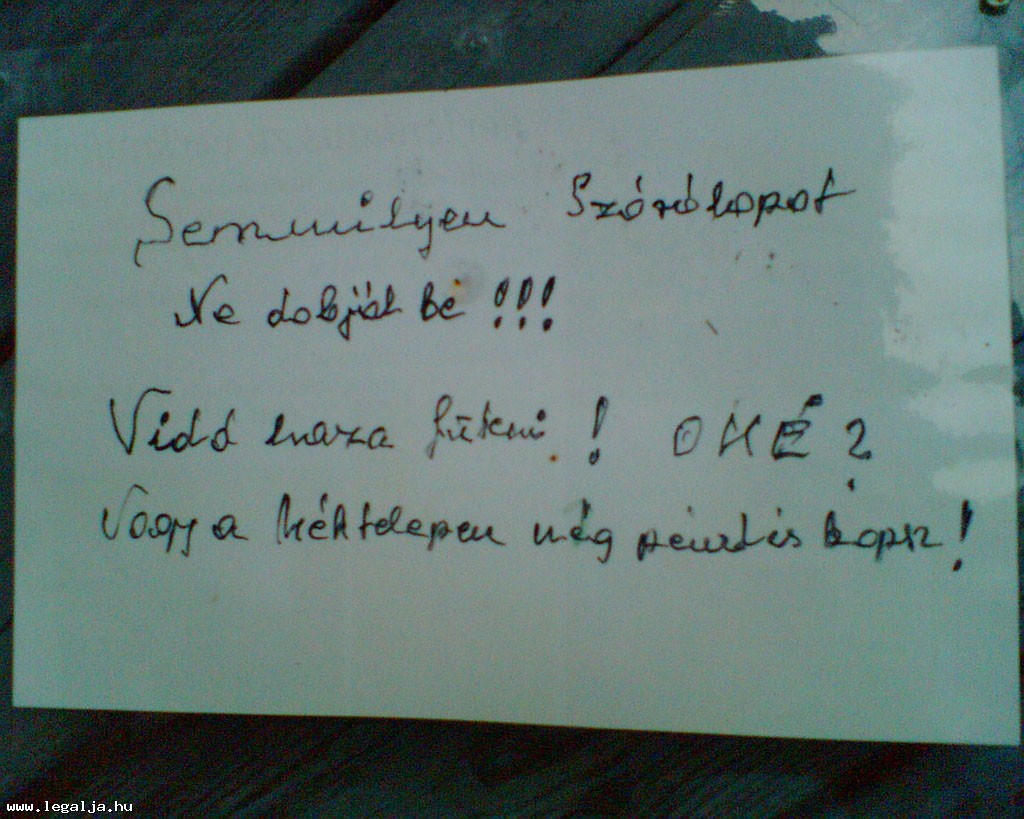 Semmilyen Szórólapot
Ne dobját be !!!
Vidd haza fűteni ! OKÉ ?
Vagy a Méhtelepen még pénzt is kapsz !
www.legalja.hu